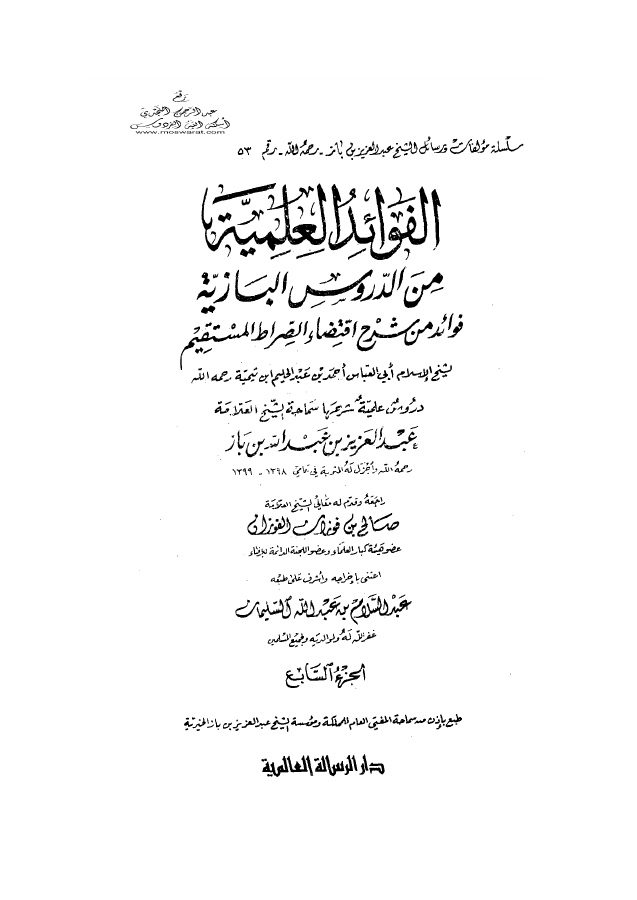 رقع
عبد الرحمن النجدي
أسكنه الله الفردوس
www.moswarat.com
سلسلة مؤلفات ورسائل الشيخ عبدالعزيز بن باز - رحمه الله - رقم ٥٣
الفَوَائِدُ العِلمِيَّة
مِنَ الدُّرُوسِ البَازِيَّة
فوائد من شَرْح اقتِضَاء الصِّرَاط المُسْتَقِيم
لشيخ الإسلام أبي العباس أحمد بن عبد الحليم ابن تيمية رحمه الله
دروس علميّة شرحها سماحة الشيخ العلّامة
عَبد العَزيز بن عَبد الله بن باز
رحمه الله وأجزل له المثوبة في عامي ١٣٩٨ - ١٣٩٩
راجعه وقدّم له معالي الشيخ العلّامة
صالح بن فوزان الفوزان
عضو هيئة كبار العلماء وعضو اللجنة الدائمة للإفتاء
اعتنى بإخراجه وأشرف على طبعه
عَبد السَّلام بن عَبد الله السّليمان
غفر الله له ولوالديه ولجميع المسلمين
الجزء السَّابع
طبع بإذن من سماحة المفتي العام للمملكة ومؤسسة الشيخ عبد العزيز بن باز الخيرية
دار الرسالة العالمية